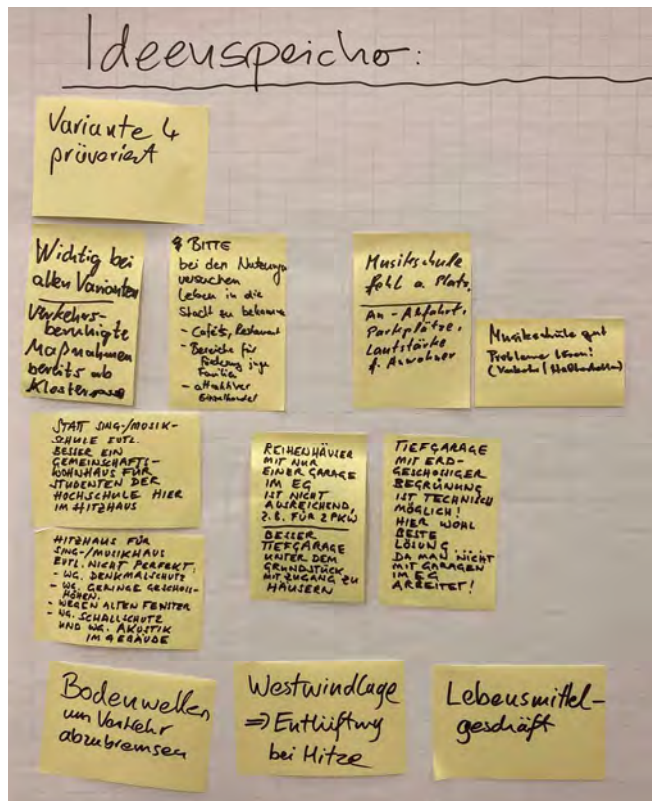 Ideenspeicher:
Variante 4
präveriert
Wichtig bei
allen Varianten
Verkehrs-
beruhigte
Maßnahmen
bereits ab
Klostergasse
BITTE
bei den Nutzungen
versuchen
Leben in die
Stadt zu bekommen
- Cafés, Restaurant
- Bereiche für
Förderung junge
Familien
- attraktiver
Einzelhandel
Musikschule
fehl a. Platz,
An-Abfahrt,
Parkplätze,
Lautstärke
f. Anwohner
Musikschule gut
Probleme lösen!
(Verkehr/Haltestellen)
STATT SING-/MUSIK-
SCHULE EVTL.
BESSER EIN
GEMEINSCHAFTS-
WOHNHAUS FÜR
STUDENTEN DER
HOCHSCHULE HIER
IM HITZHAUS
HITZHAUS FÜR
SING-/MUSIKHAUS
EVTL. NICHT PERFEKT:
- WG. DENKMALSCHUTZ
- WG. GERINGE GESCHOSS-
HÖHEN.
- WEGEN ALTEN FENSTER
- WG. SCHALLSCHUTZ
UND WG. AKUSTIK
IM GEBÄUDE
REIHENHÄUSER
MIT NUR
EINER GARAGE
IM EG
IST NICHT
AUSREICHEND,
Z.B. FÜR 2 PKW
BESSER
TIEFGARAGE
UNTER DEM
GRUNDSTÜCK
MIT ZUGANG ZU
HÄUSERN
TIEFGARAGE
MIT ERD-
GESCHOSSIGER
BEGRÜNUNG
IST TECHNISCH
MÖGLICH!
HIER WOHL
BESTE
LÖSUNG
DA MAN NICHT
MIT GARAGEN
IM EG
ARBEITET!
Bodenwellen
um Verkehr
abzubremsen
Westwindlage
=> Entlüftung
bei Hitze
Lebensmittel-
geschäft